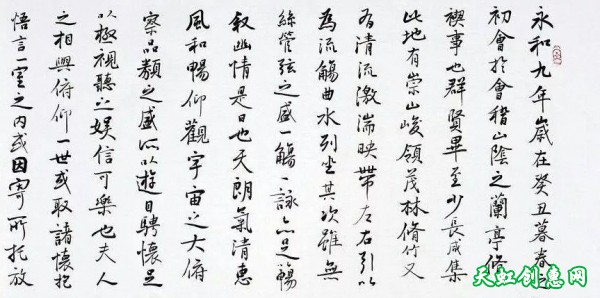 永和九年歲在癸丑暮春之
初會於會稽山陰之蘭亭脩
禊事也群賢畢至少長咸集
此地有崇山峻領茂林脩竹又
有清流激湍映帶左右引以
為流觴曲水列坐其次雖無
絲管弦之盛一觴一詠亦足暢
敘幽情是日也天朗氣清惠
風和暢仰觀宇宙之大俯
察品類之盛所以遊目騁懷足
以極視聽之娛信可樂也夫人
之相與俯仰一世或取諸懷抱
悟言一室之內或因寄所托放
天虹创意网